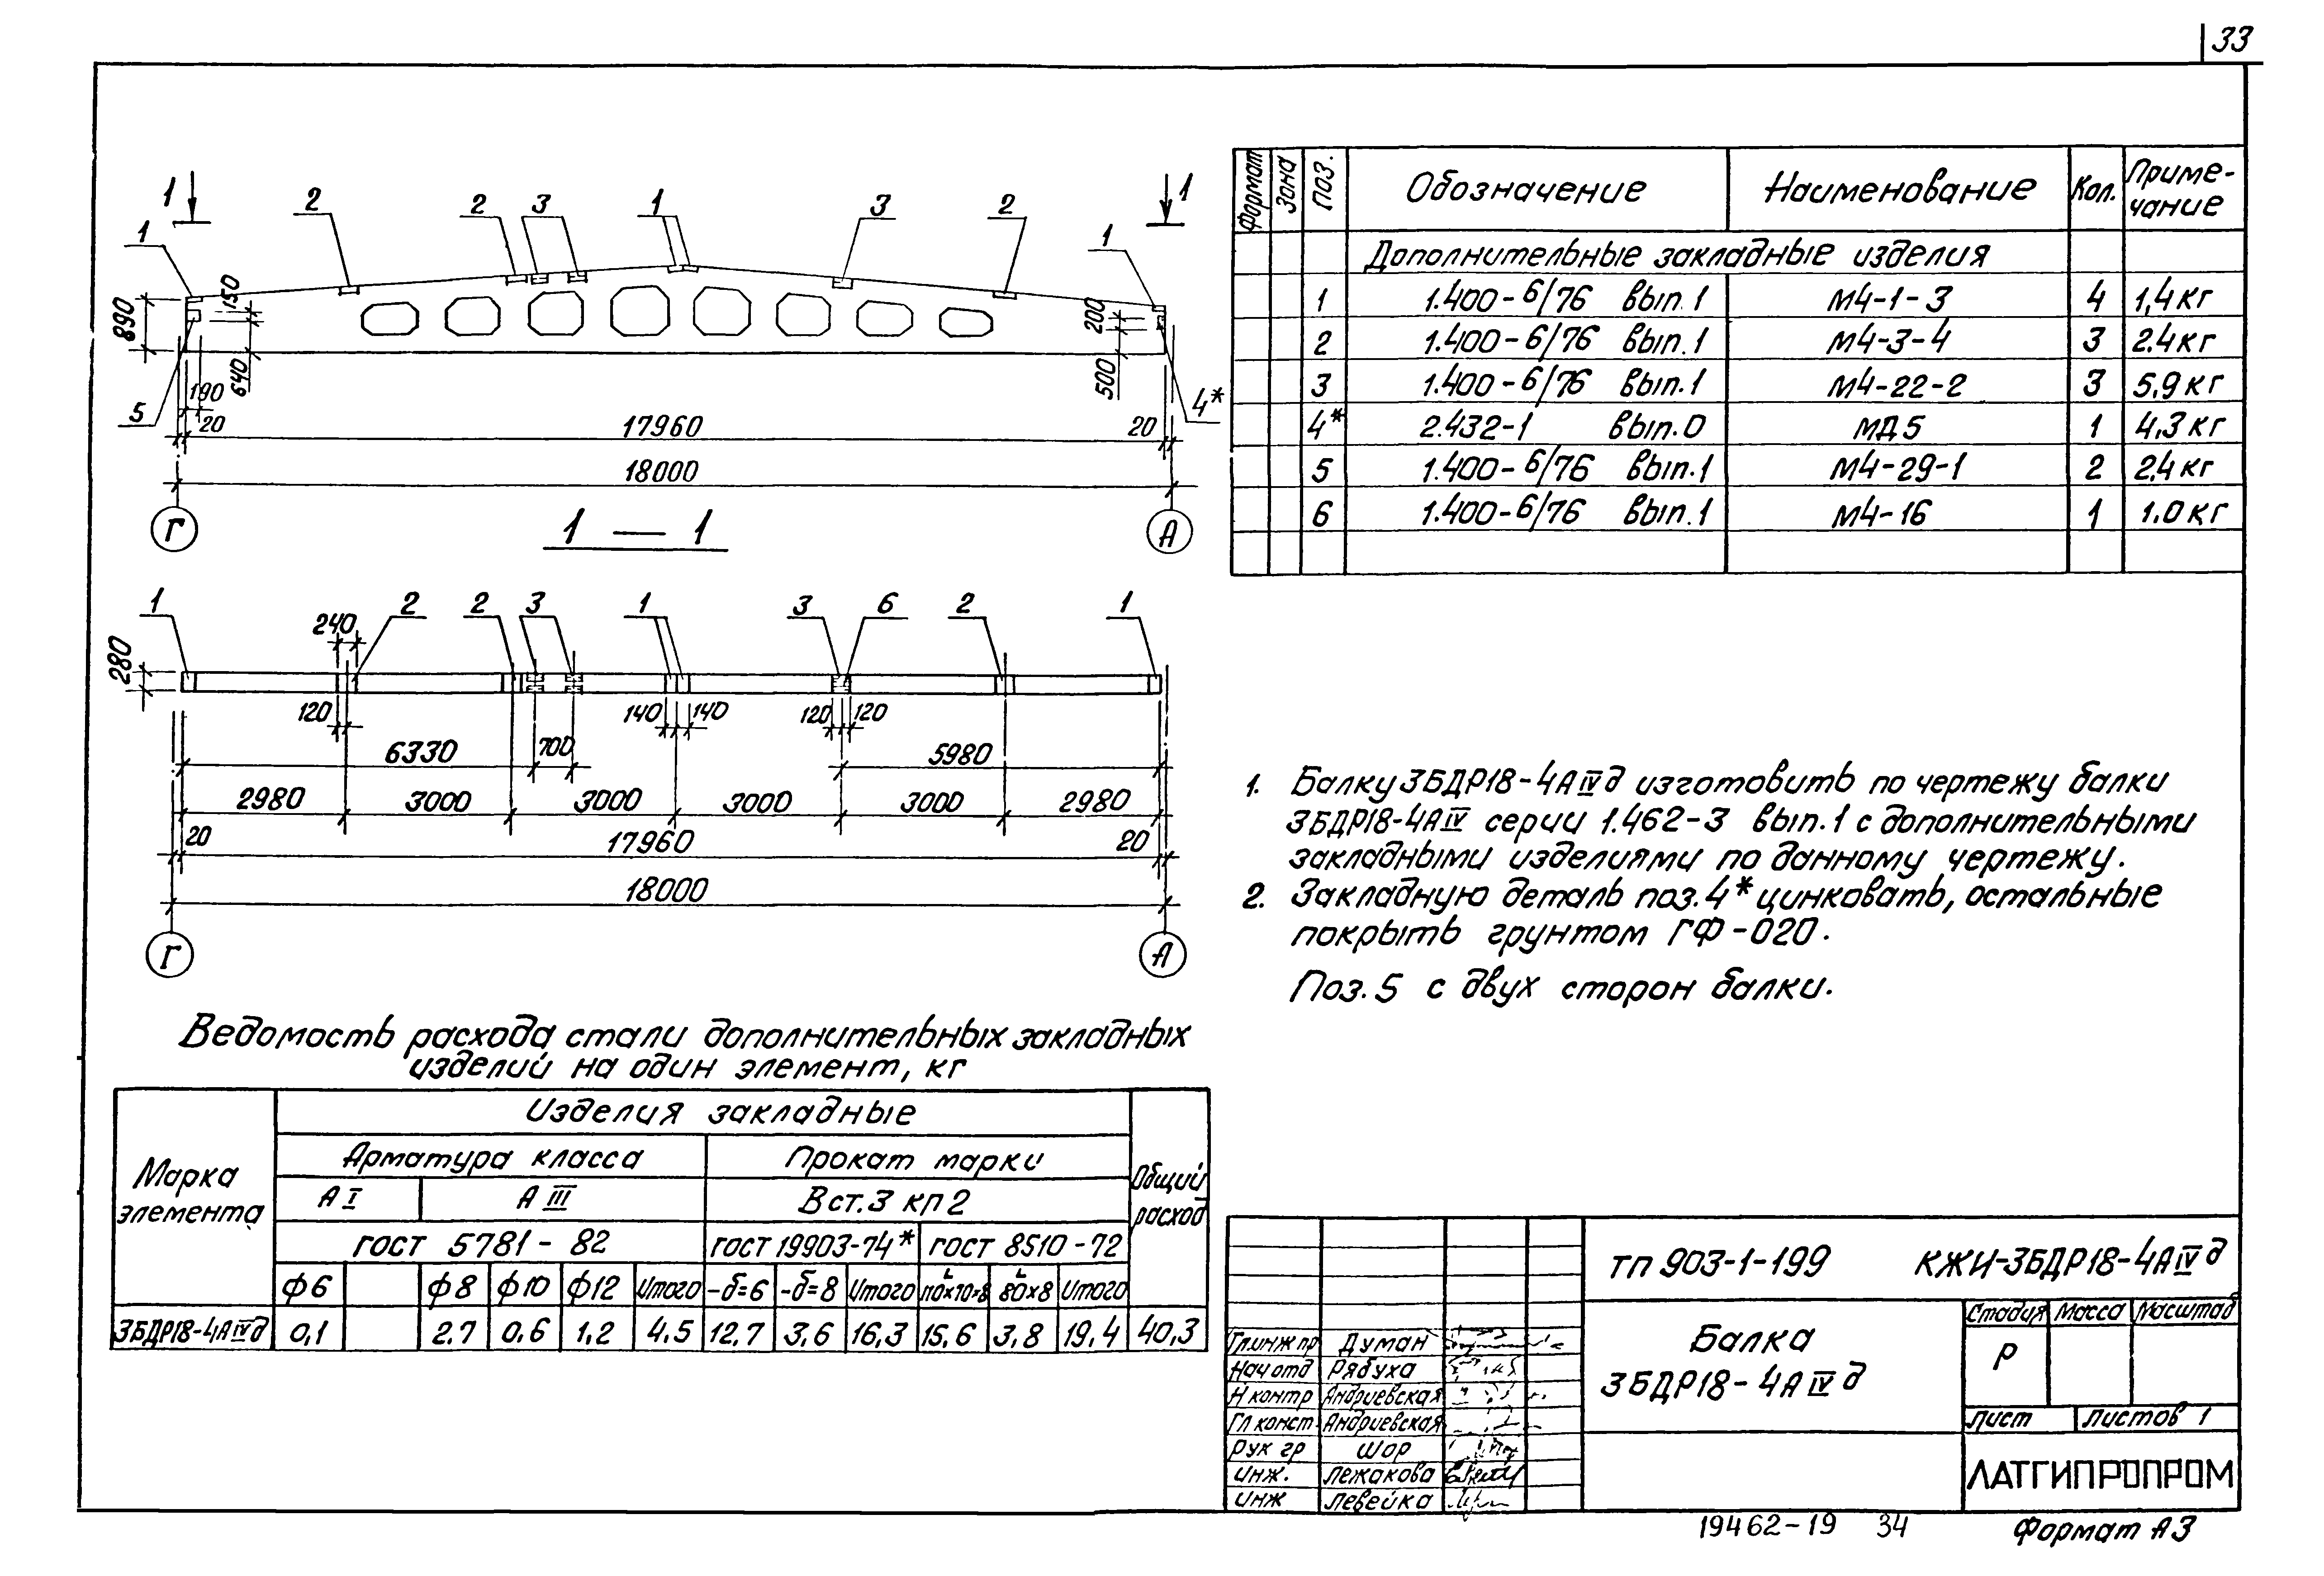 33
1 1
2 2 3 1 3 2
1 1
890 150 200
640 500
190
5 20 17960 20 4*
18000
Г А
1 — 1
1 2 2 3 1 3 6 2 1
240
280
120 140 140 120 120
6330 700 5980
2980 3000 3000 3000 3000 2980
20 17960 20
18000
Г А
Формат Зона Поз. Обозначение Наименование Кол. Приме-
чание
Дополнительные закладные изделия
1 1.400-6/76 вып.1 М4-1-3 4 1,4 кг
2 1.400-6/76 вып.1 М4-3-4 3 2.4 кг
3 1.400-6/76 вып.1 М4-22-2 3 5,9 кг
4* 2.432-1 вып.0 МД5 1 4,3 кг
5 1.400-6/76 вып.1 М4-29-1 2 2,4 кг
6 1.400-6/76 вып.1 М4-16 1 1.0 кг
1. Балку 3БДР18-4АIVд изготовить по чертежу балки
3БДР18-4АIV серии 1.462-3 вып.1 с дополнительными
закладными изделиями по данному чертежу.
2. Закладную деталь поз.4* цинковать, остальные
покрыть грунтом ГФ-020.
Поз.5 с двух сторон балки.
Ведомость расхода стали дополнительных закладных
изделий на один элемент, кг
Марка
элемента
Изделия закладные
Общий
расход
Арматура класса Прокат марки
А I А III Вст.3 кп2
ГОСТ 5781-82 ГОСТ 19903-74* ГОСТ 8510-72
ф6 ф8 ф10 ф12 Итого -δ=6 -δ=8 Итого 80×8 Итого
3БДР18-4АIVд 0,1 2.7 0,6 1,2 4,5 12,7 3,6 16,3 15,6 3,8 19,4 40,3
ТП 903-1-199 КЖИ-3БДР18-4АIVд
Балка
3БДР18-4АIVд
Стадия Масса Масштаб
Р
Лист Листов 1
ЛАТГИПРОПРОМ
Гл.инж пр Думан
Нач отд Рябуха
Н контр Андриевская
Гл конст. Андриевская
Рук гр Шор
Инж. Лежакова
Инж Левейка
19462-19 34 Формат А3